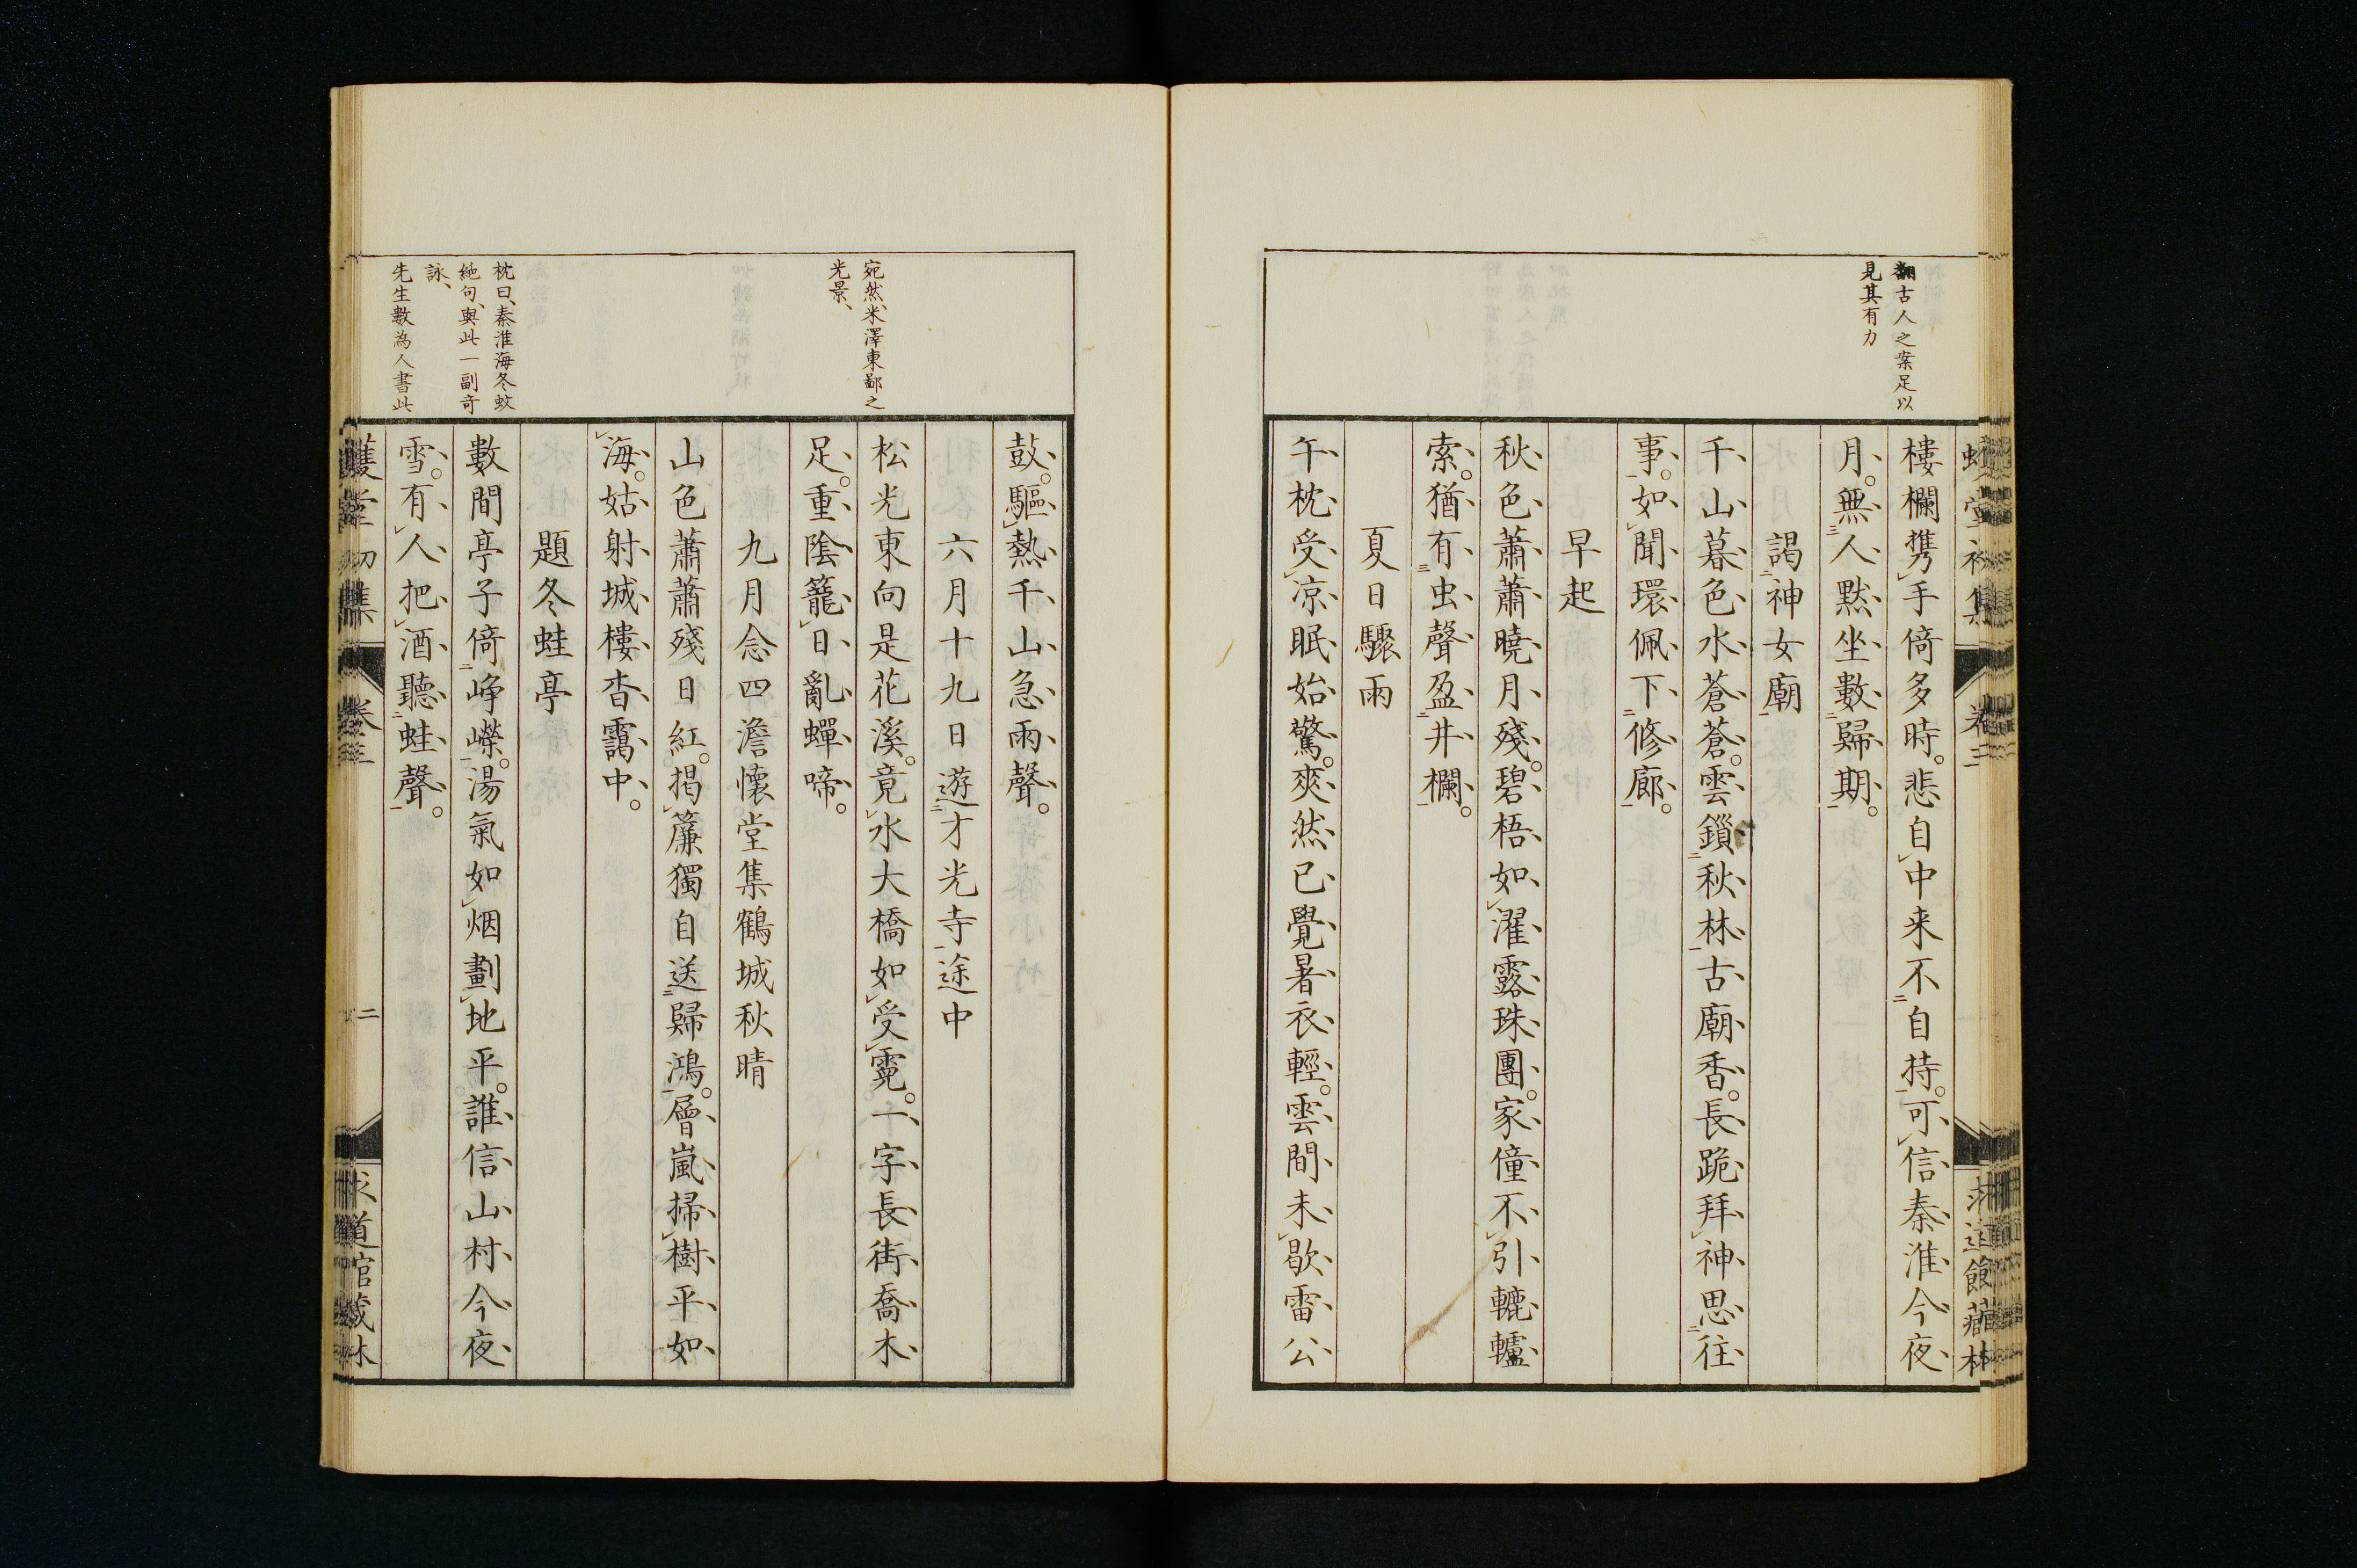 翻古人之案足以
見其有力
樓欄携手倚多時。悲自中来不自持。可信秦淮今夜
月。無人默坐數歸期。
謁神女廟
千山暮色水蒼蒼。雲鎻秋林古廟香。長跪拜神思往
事。如聞環佩下修廊。
早起
秋色蕭蕭曉月殘。碧梧如濯露珠團。家僮不引轆轤
索。猶有虫聲盈井欄。
夏日驟雨
午枕受凉眠始驚。爽然已覺暑衣輕。雲間未歇雷公
宛然、米澤東鄙之
光景、
枕曰、秦淮海冬蚊
絶句、與此一副奇
詠、
先生數為人書此
鼓。驅熱千山急雨聲。
六月十九日遊才光寺途中
松光東向是花溪。竟水大橋如受霓。一字長街喬木
足。重陰籠日亂蟬啼。
九月念四澹懐堂集鶴城秋晴
山色蕭蕭殘日紅。掲簾獨自送歸鴻。層嵐掃樹平如
海。姑射城樓杳靄中。
題冬蛙亭
數間亭子倚崢嶸。湯氣如烟劃地平。誰信山村今夜
雪。有人把酒聽蛙聲。
卷三
二